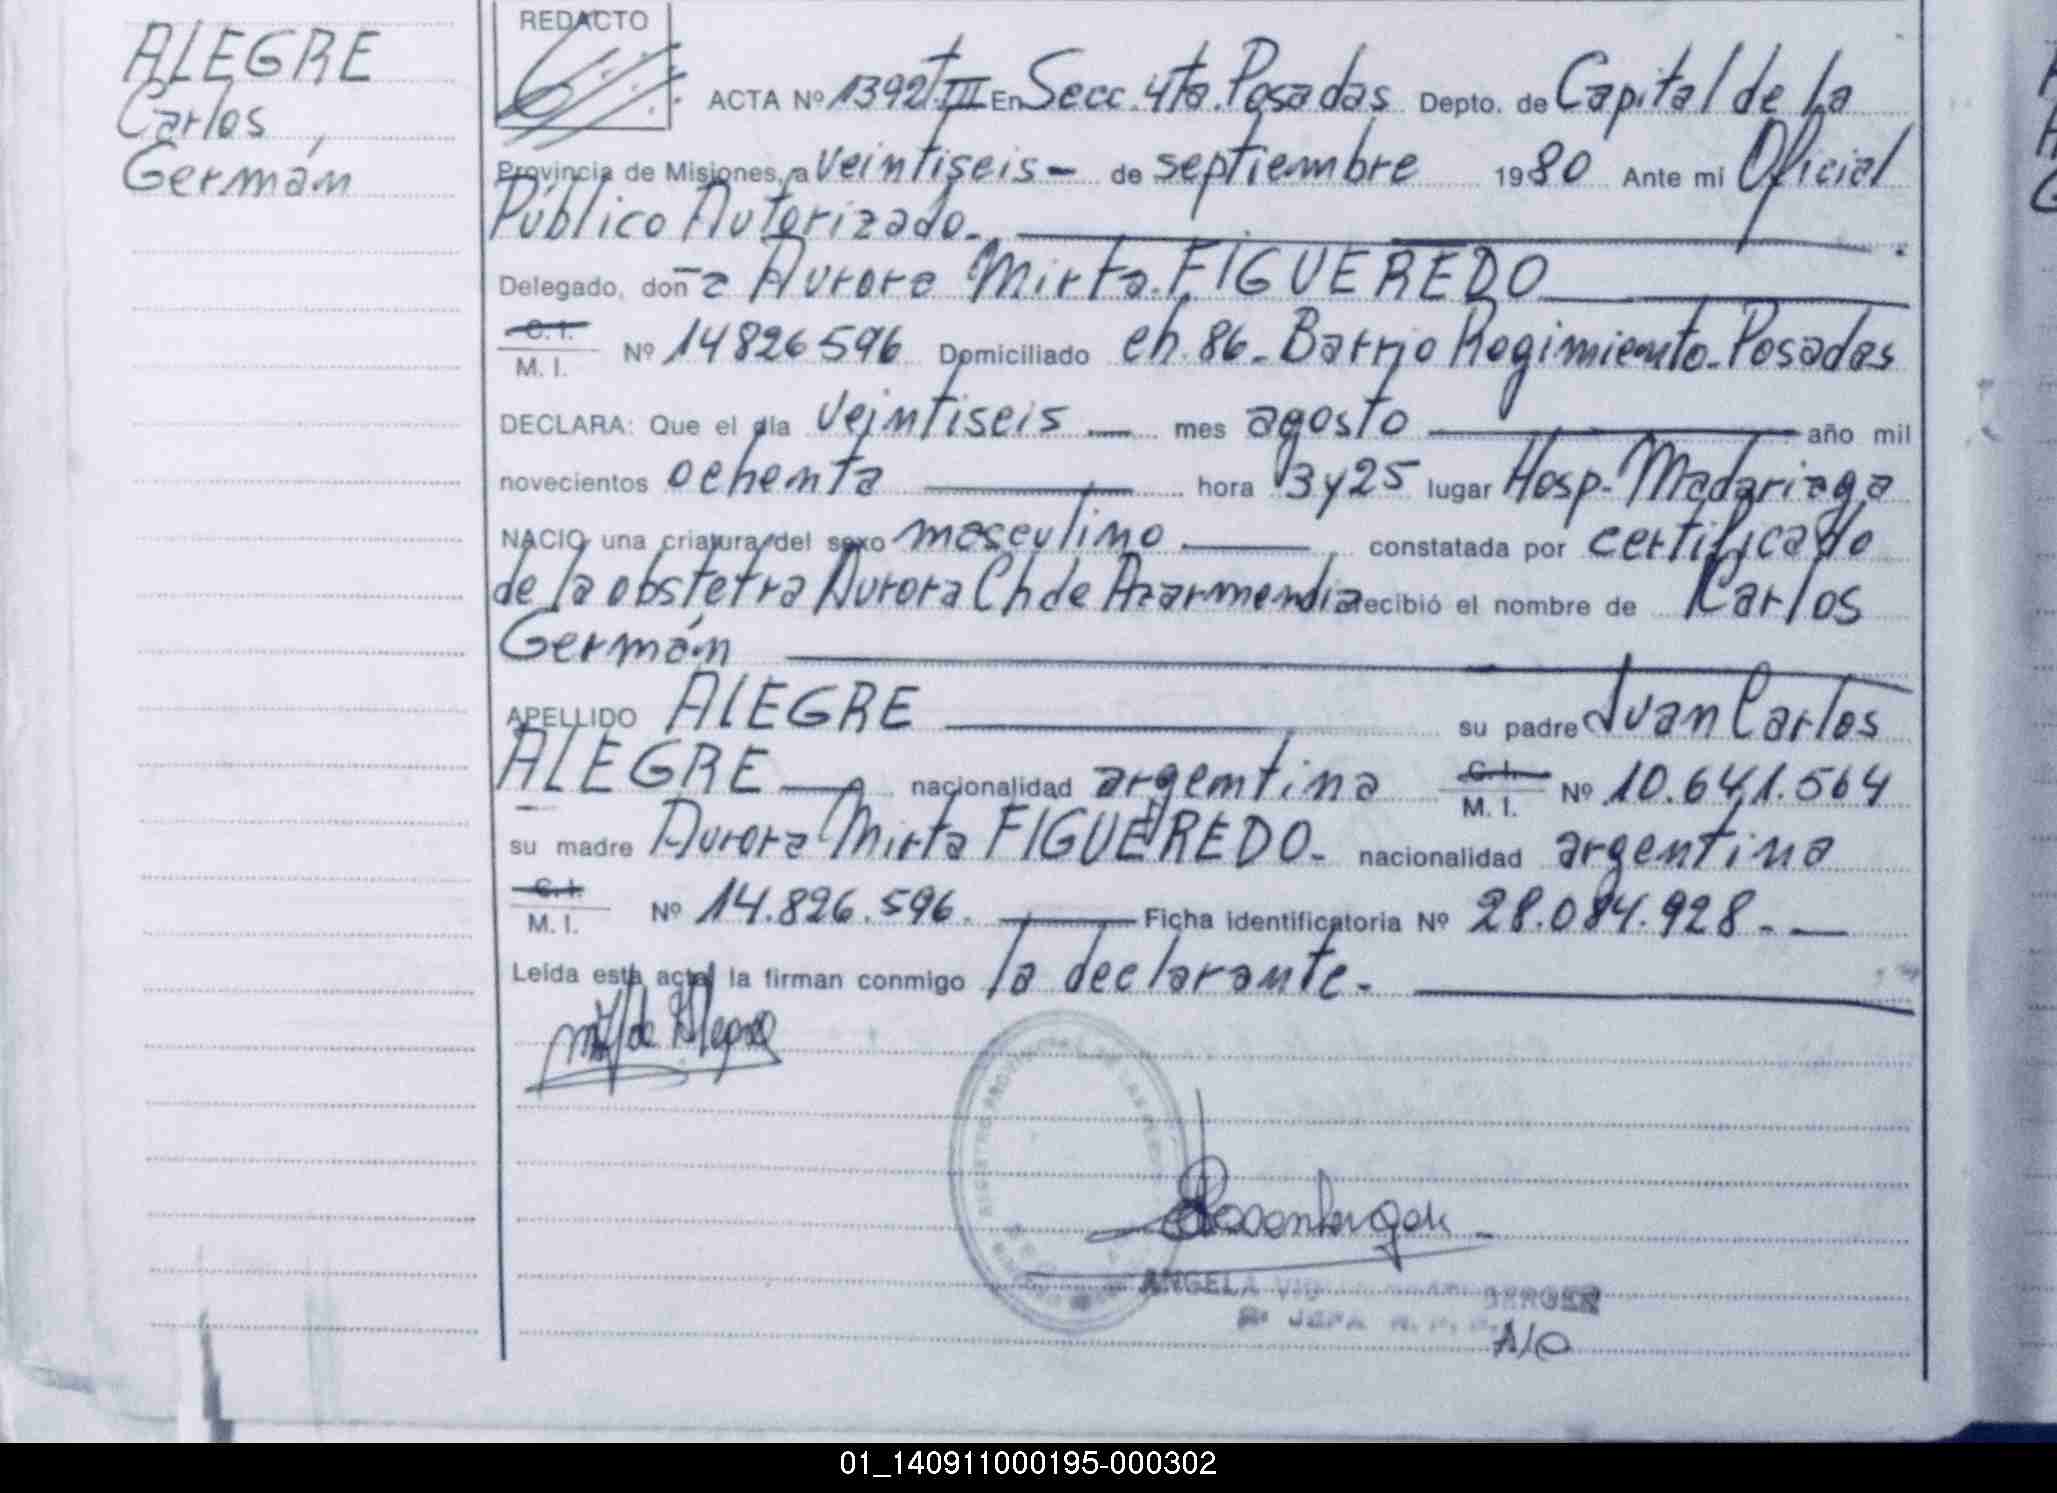 ALEGRE
Carlos
Germán
REDACTO
ACTA Nº 1392 T III En Secc. 4ta. Posadas Depto. de Capital de la
Provincia de Misiones, a veintiseis - de septiembre 1980 Ante mi Oficial
Público Autorizado.
Delegado, doña Aurora Mirta FIGUEREDO
C. I.
M. I. Nº 14826596 Domiciliado ch. 86. Barrio Regimiento. Posadas
DECLARA: Que el día veintiseis mes agosto año mil
novecientos ochenta hora 3 y 25 lugar Hosp. Madariaga
NACIO una criatura del sexo masculino constatada por certificado
de la obstetra Aurora Ch de Azarmendia recibió el nombre de Carlos
Germán
APELLIDO ALEGRE su padre Juan Carlos
ALEGRE nacionalidad argentina C. I. M. I. Nº 10.641.564
su madre Aurora Mirta FIGUEREDO. nacionalidad argentina
C. I.
M. I. Nº 14.826.596. Ficha identificatoria Nº 28.084.928.
Leída esta acta, la firman conmigo la declarante.
de Alegre
REGISTRO PROVINCIAL DE LAS
ANGELA
A/C
01_140911000195-000302